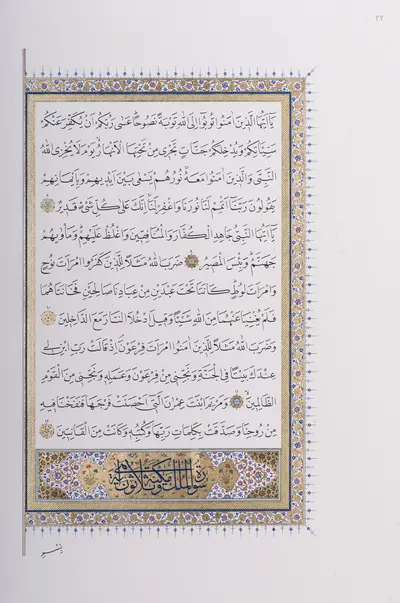 ٢٢
يَا أَيُّهَا الَّذِينَ آمَنُوا تُوبُوا إِلَى اللهِ تَوْبَةً نَصُوحًا عَسَى رَبُّكُمْ أَنْ يُكَفِّرَ عَنْكُمْ
سَيِّئَاتِكُمْ وَيُدْخِلَكُمْ جَنَّاتٍ تَجْرِي مِنْ تَحْتِهَا الْأَنْهَارُ يَوْمَ لَا يُخْزِي اللهُ
النَّبِيَّ وَالَّذِينَ آمَنُوا مَعَهُ نُورُهُمْ يَسْعَى بَيْنَ أَيْدِيهِمْ وَبِأَيْمَانِهِمْ
يَقُولُونَ رَبَّنَا أَتْمِمْ لَنَا نُورَنَا وَاغْفِرْ لَنَا إِنَّكَ عَلَى كُلِّ شَيْءٍ قَدِيرٌ
يَا أَيُّهَا النَّبِيُّ جَاهِدِ الْكُفَّارَ وَالْمُنَافِقِينَ وَاغْلُظْ عَلَيْهِمْ وَمَأْوَيهُمْ
جَهَنَّمُ وَبِئْسَ الْمَصِيرُ ضَرَبَ اللهُ مَثَلًا لِلَّذِينَ كَفَرُوا امْرَأَتَ نُوحٍ
وَامْرَأَتَ لُوطٍ كَانَتَا تَحْتَ عَبْدَيْنِ مِنْ عِبَادِنَا صَالِحَيْنِ فَخَانَتَاهُمَا
فَلَمْ يُغْنِيَا عَنْهُمَا مِنَ اللهِ شَيْئًا وَقِيلَ ادْخُلَا النَّارَ مَعَ الدَّاخِلِينَ
وَضَرَبَ اللهُ مَثَلًا لِلَّذِينَ آمَنُوا امْرَأَتَ فِرْعَوْنَ إِذْ قَالَتْ رَبِّ ابْنِ لِي
عِنْدَكَ بَيْتًا فِي الْجَنَّةِ وَنَجِّنِي مِنْ فِرْعَوْنَ وَعَمَلِهِ وَنَجِّنِي مِنَ الْقَوْمِ
الظَّالِمِينَ وَمَرْيَمَ ابْنَتَ عِمْرَانَ الَّتِي أَحْصَنَتْ فَرْجَهَا فَنَفَخْنَا فِيهِ
مِنْ رُوحِنَا وَصَدَّقَتْ بِكَلِمَاتِ رَبِّهَا وَكُتُبِهِ وَكَانَتْ مِنَ الْقَانِتِينَ
سورة الملك مكية وهي ثلاثون آية